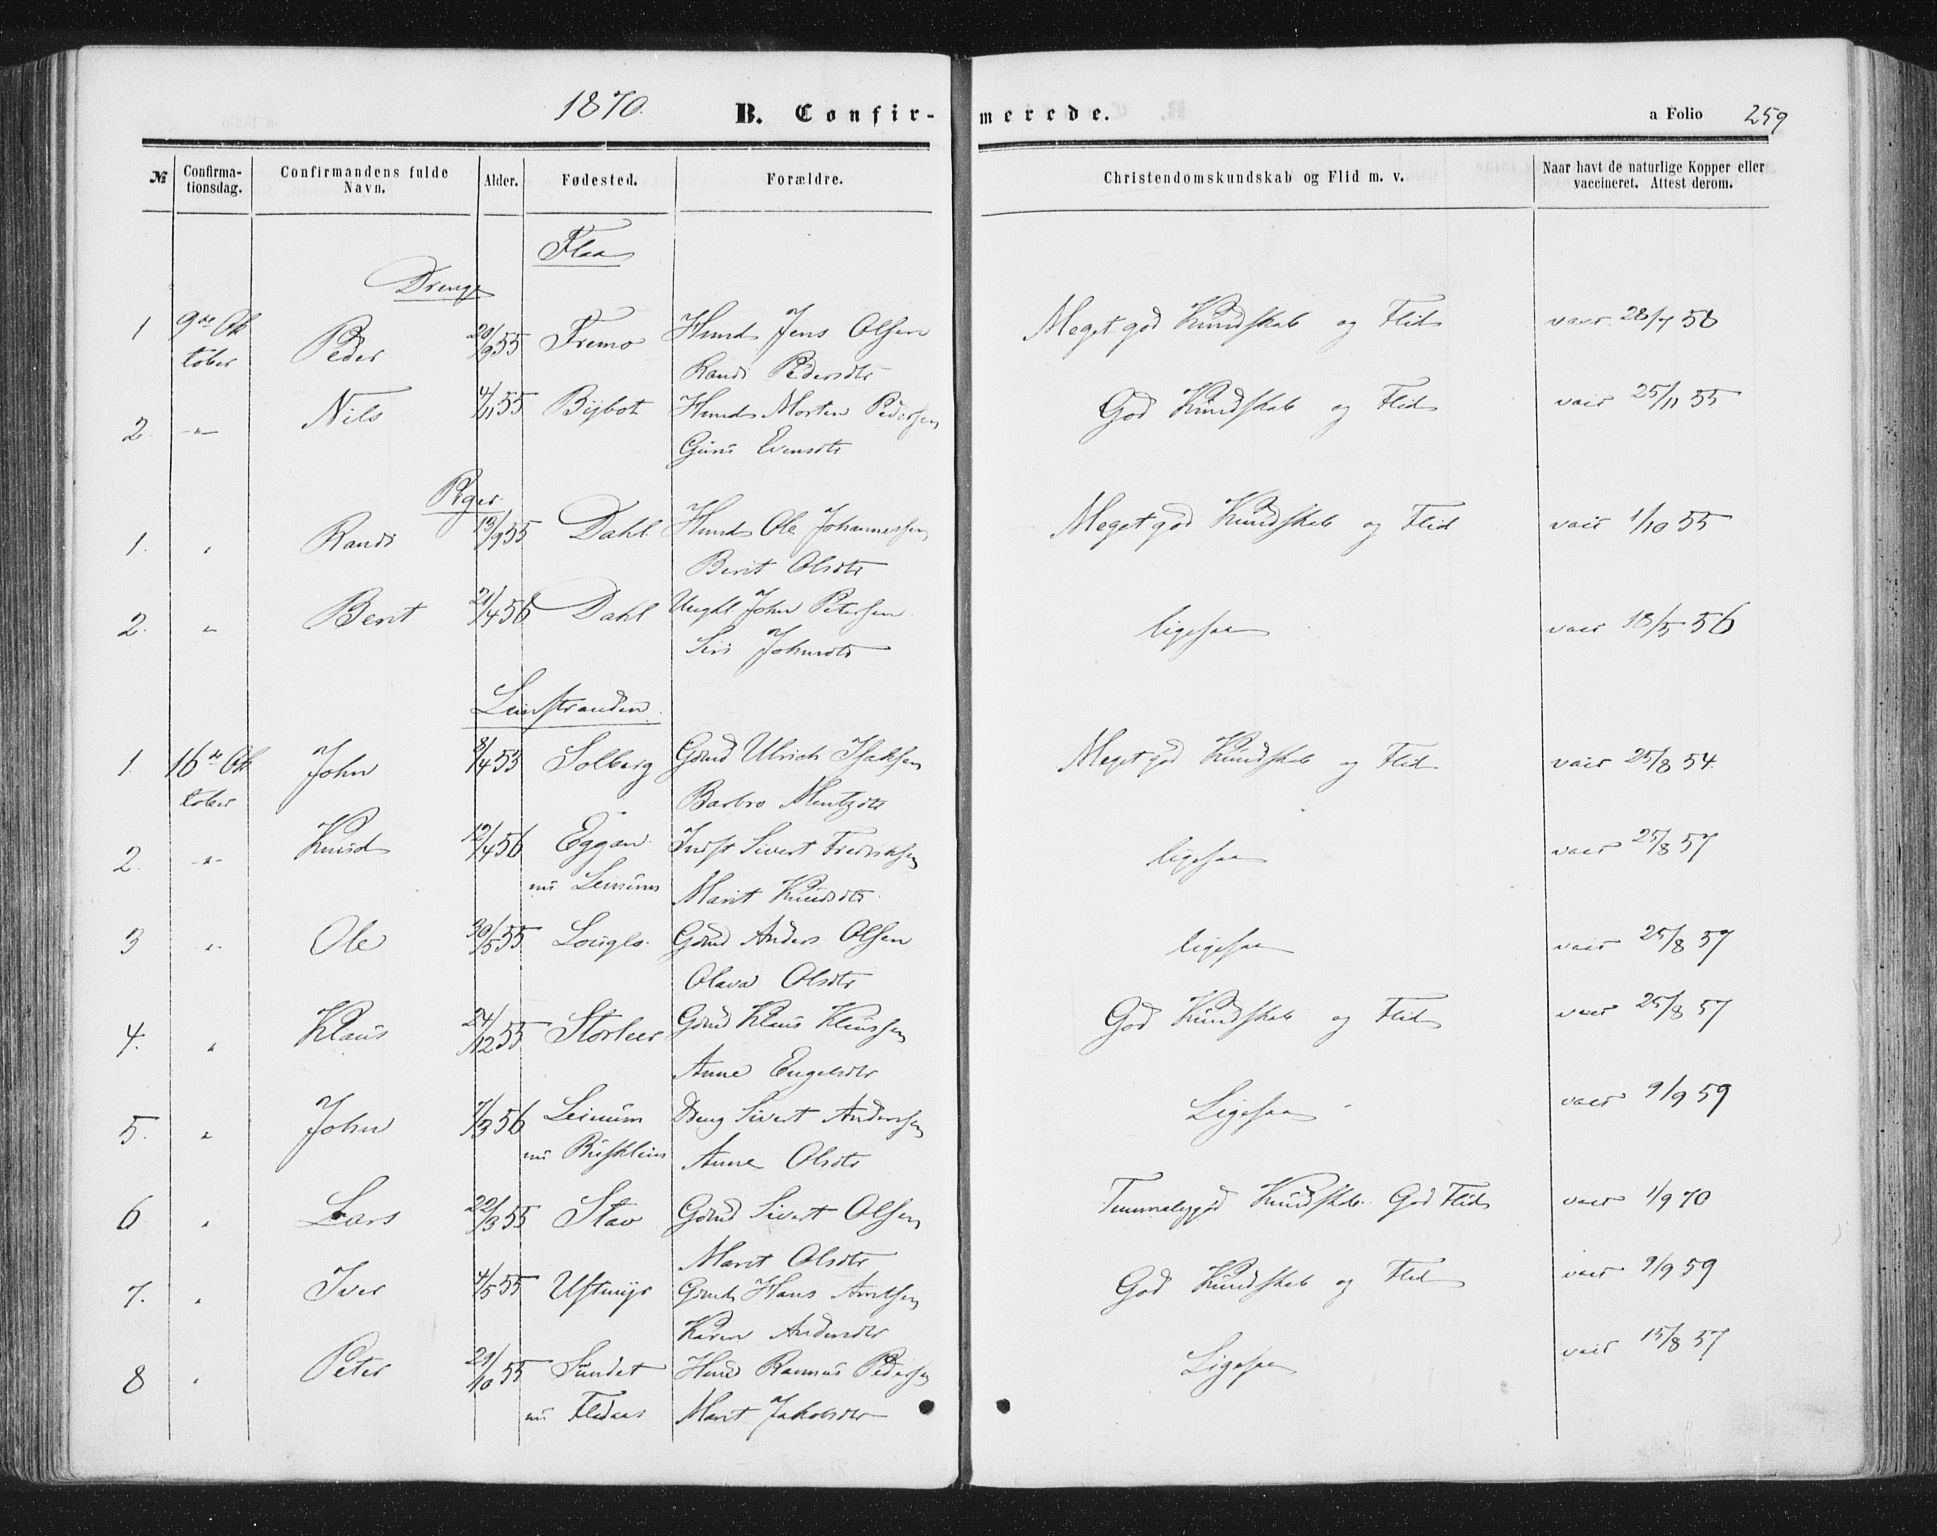 1870. B. Confir- merede. a Folio 259
№ Confirma-tionsdag. Confirmandens fulde Navn. Alder. Fødested. Forældre. Christendomskundskab og Flid m. v. Naar havt de naturlige Kopper eller vaccineret. Attest derom.
Flaa
Drenge
1. 9de Ok Peder 20/9 55 Fremo Huusmd Jens Olsen Meget god Kundskab og Flid vacc. 28/7 58
tober Randi Pedersdtr
2. -"- Nils 4/11 55 Bybot Huusmd Morten Pedersen God Kundskab og Flid vacc 25/11 55
Guru Evensdtr
Piger
1. " Randi 13/9 55 Dahl Huusmd Ole Johannessen Meget god Kundskab og Flid vacc 1/10 55
Berit Olsdtr
2. " Berit 21/4 56 Dahl Ungkl. John Petersen ligesaa vacc 18/5 56
Siri Johnsdtr
Leinstranden
1. 16de Ok John 8/4 53 Solberg Gbmd Ulrich Isaksen Meget god Kundskab og Flid vacc 25/8 54.
tober Barbro Mentzdtr
2. -"- Knud 12/4 56 Eggan Indst Sivert Fredriksen ligesaa vacc 25/8 57
nu Leinum Marit Knudsdtr
3 " Ole 30/5 55 Gbmd Anders Olsen ligesaa vacc 25/8 57
Olava Olsdtr
4. " Klaus 24/12 55 Storler Gbmd Klaus Klaussen God Kundskab og Flid vacc 25/8 57
Anne Engelsdtr
5. " John 7/3 56 Leinum Sivert Andersen Ligesaa vacc 9/9 59
nu Buskleins Anne Olsdtr
6 " Lars 22/3 55 Stav Gbmd Sivert Olsen Temmelig god Kundskab. God Flid vacc 1/9 70
Marit Olsdtr
7. " Iver 4/5 55 Ustmyr Gbmd Hans Arntsen God Kundskab og Flid vacc 9/9 59
Karen Andersdtr
8 " Peter 21/10 55 Sundet Huusmd Rasmus Pedersen Ligesaa vacc 15/8 57
nu Flidaas Marit Jakobsdtr